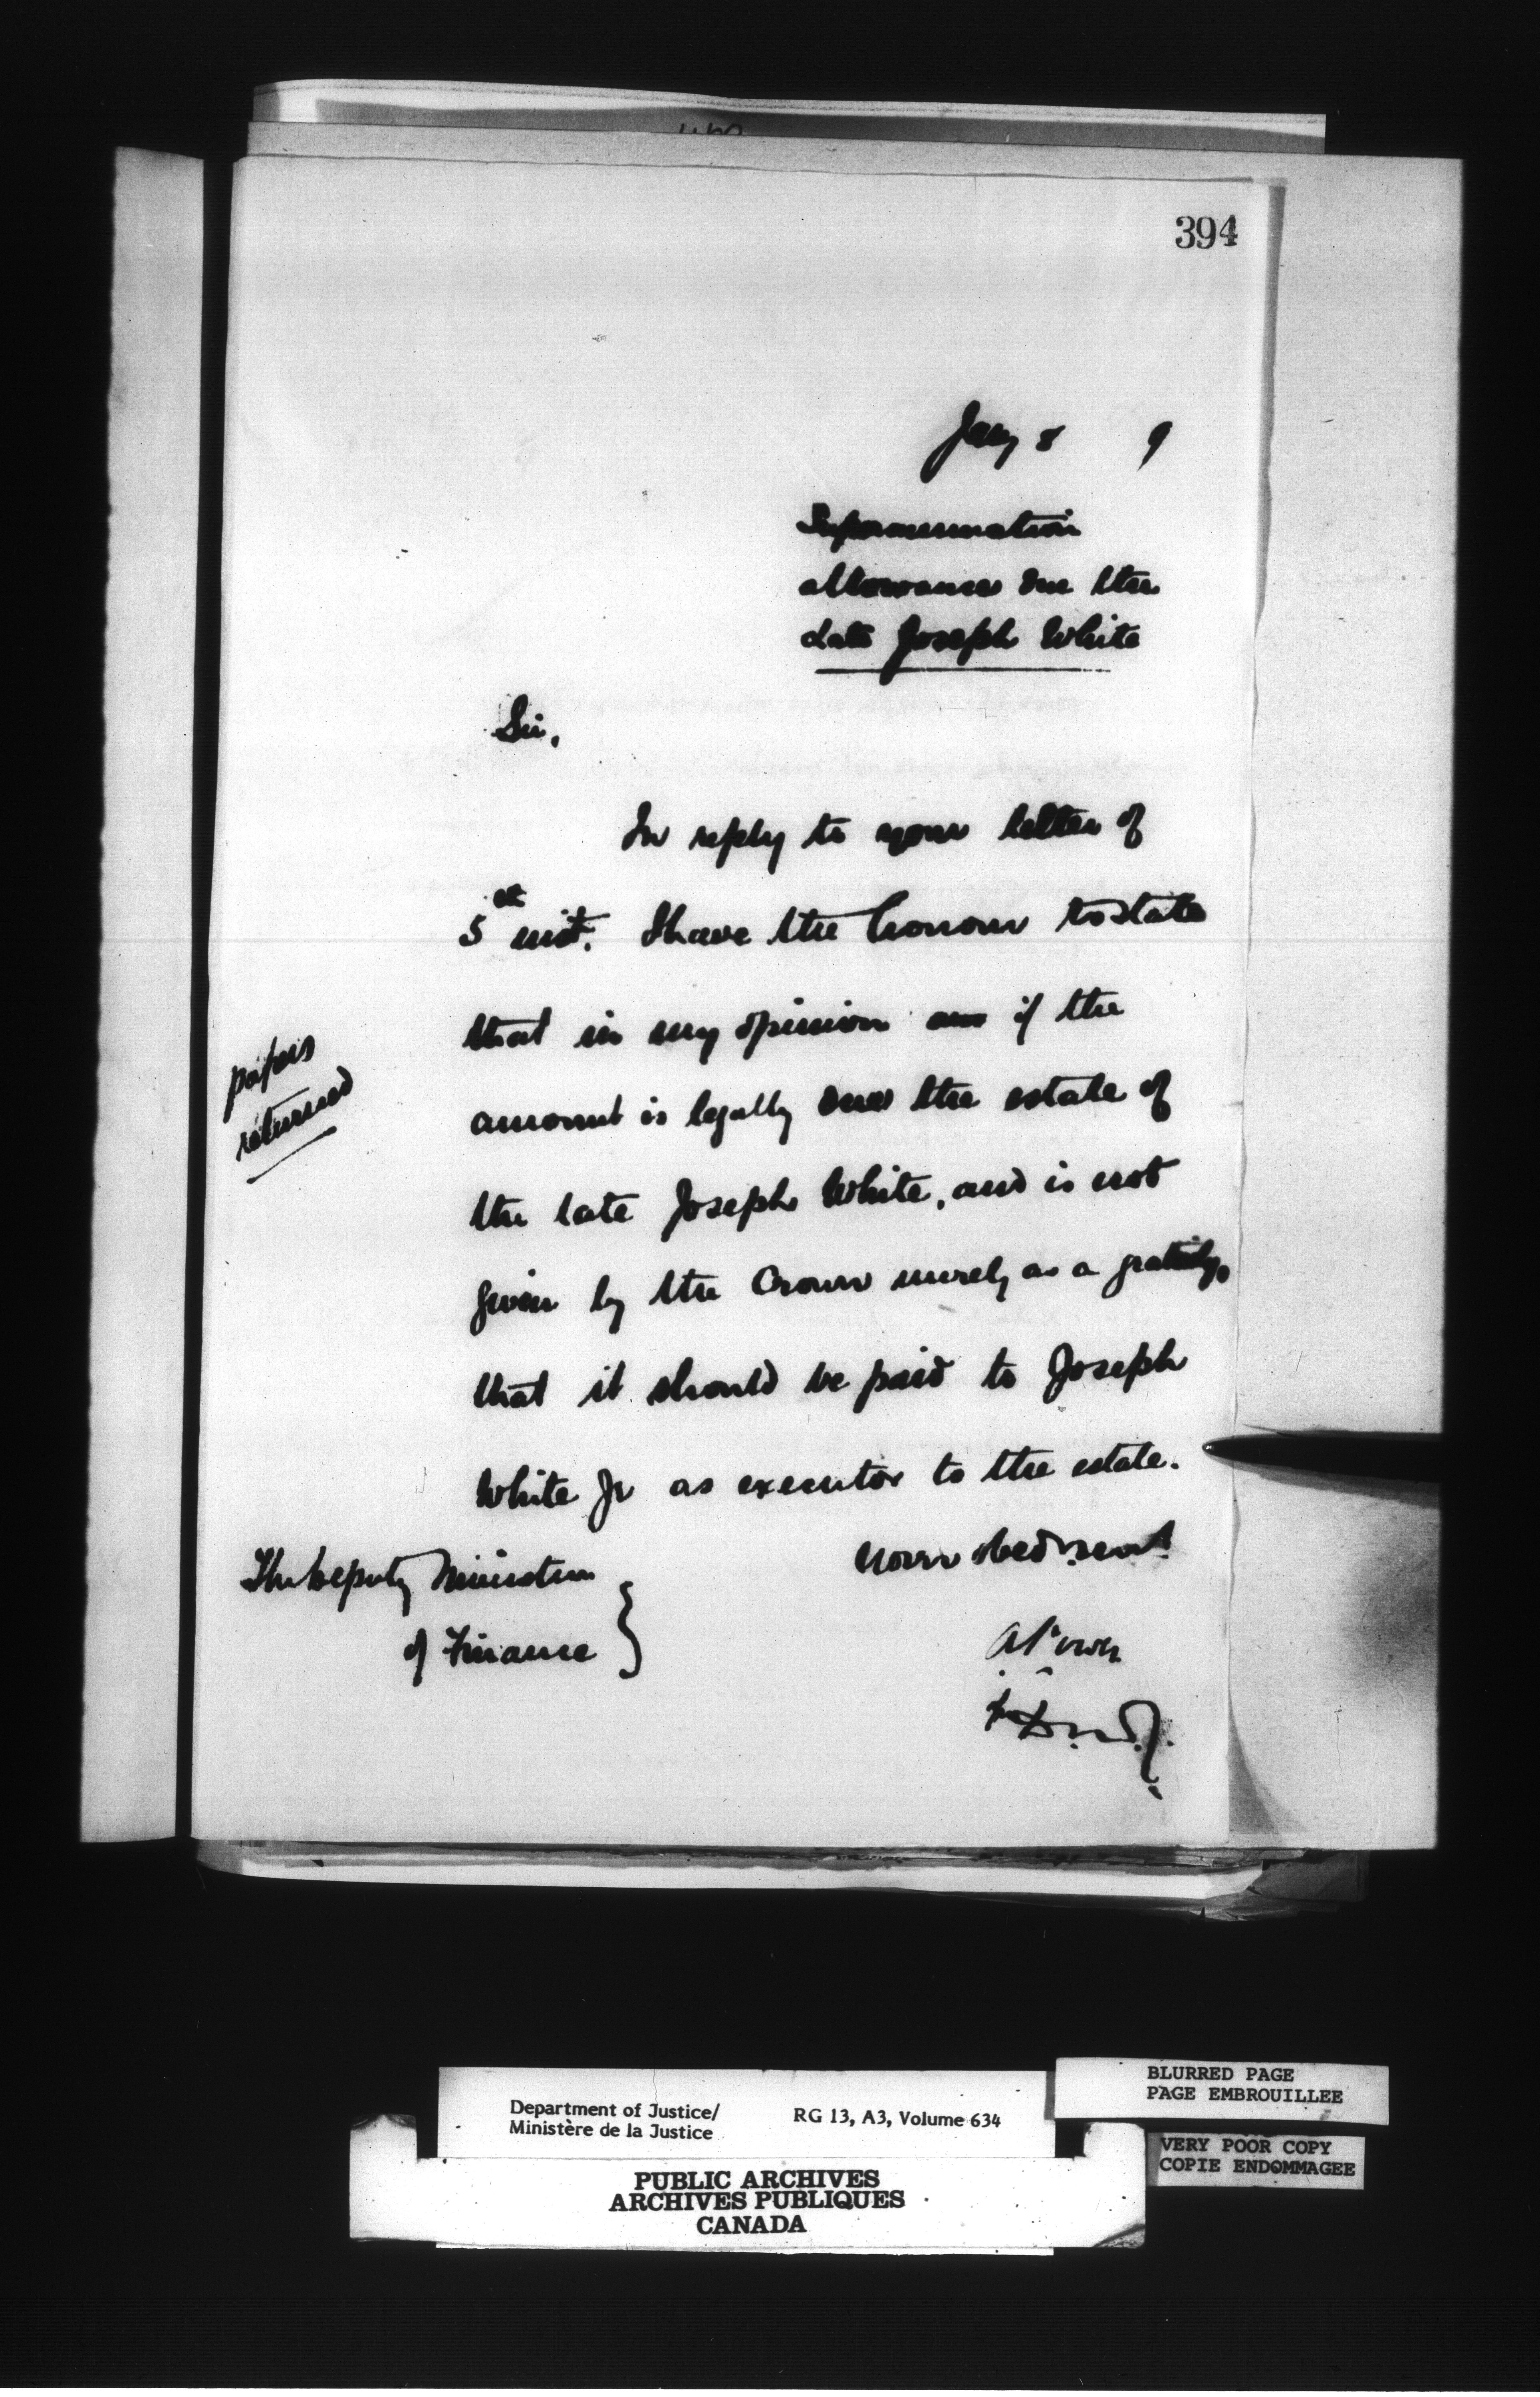 394
Jany 8 9
Superannuation
allowance due the
late Joseph White
Sir,
In reply to your letter of
5th inst. I have the honour to state
that in my opinion if the
amount is legally due the estate of
the late Joseph White, and is not
given by the Crown merely as a gratuity,
that it should be paid to Joseph
White Jr as executor to the estate.
papers
returned
Your obed. servt.
A Power
for D.M.J.
The Deputy Minister
of Finance
Department of Justice/
Ministère de la Justice
RG 13, A3, Volume 634
BLURRED PAGE
PAGE EMBROUILLEE
VERY POOR COPY
COPIE ENDOMMAGEE
PUBLIC ARCHIVES
ARCHIVES PUBLIQUES
CANADA